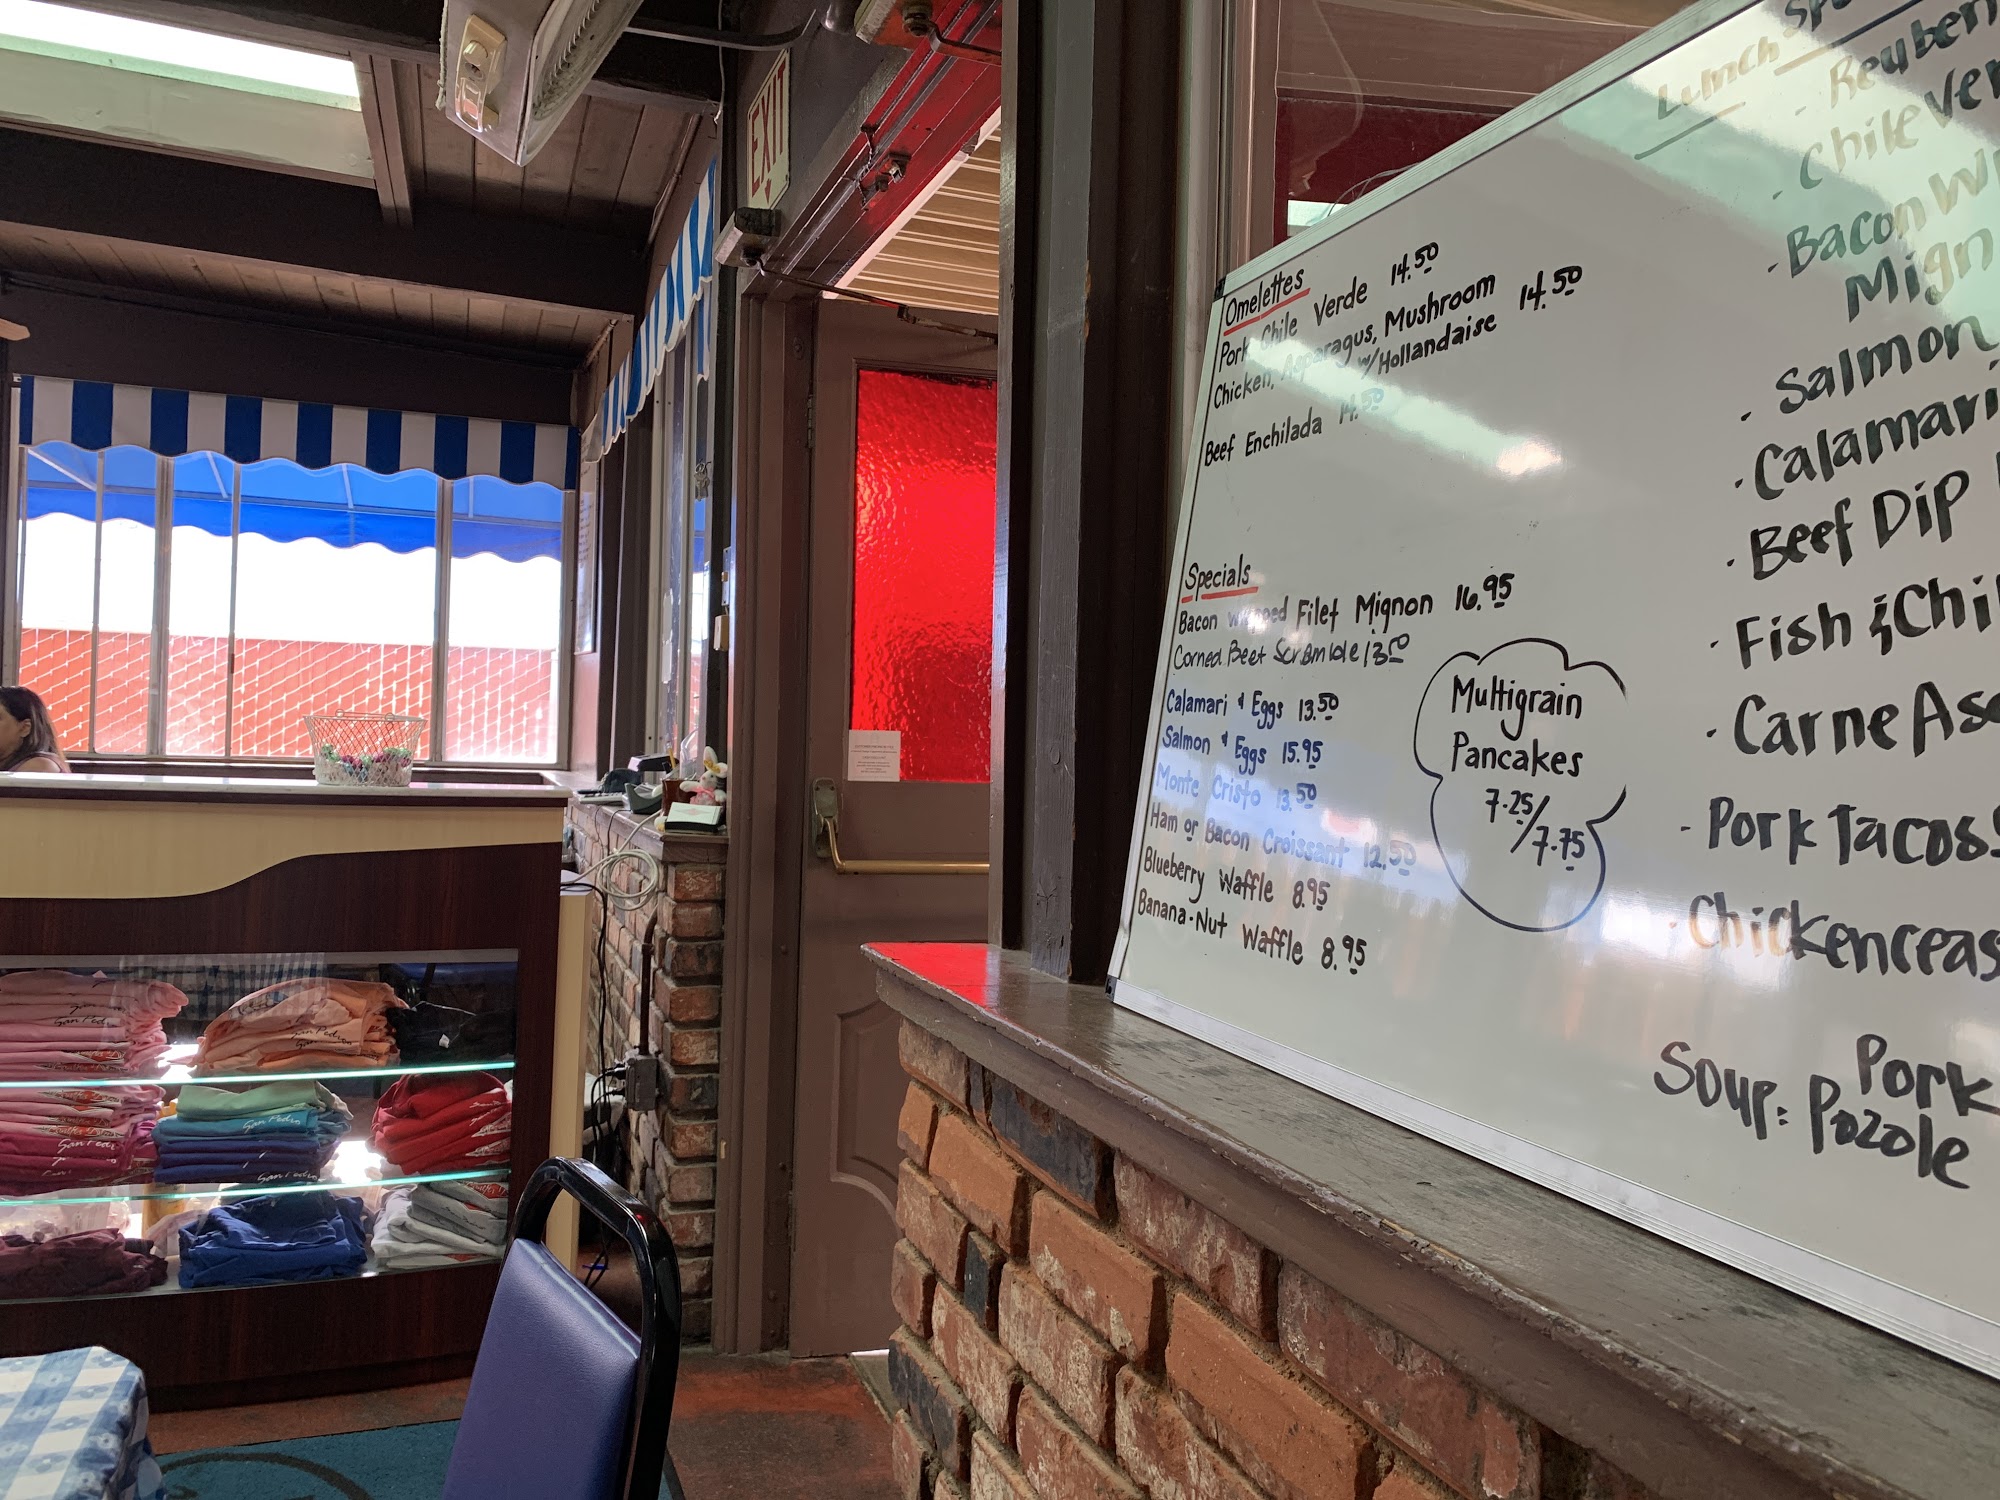 EXIT
Omelettes
Pork Chile Verde 14.50
Chicken, Asparagus, Mushroom
w/Hollandaise 14.50
Beef Enchilada 14.50
Specials
Bacon wrapped Filet Mignon 16.95
Corned Beef Scramble 13.50
Calamari & Eggs 13.50
Salmon & Eggs 15.95
Monte Cristo 13.50
Ham or Bacon Croissant 12.50
Blueberry Waffle 8.95
Banana-Nut Waffle 8.95
Multigrain
Pancakes
7.25/7.75
Lunch
- Reuben
- Chile Ver
- Bacon
Mign
- Salmon
- Calamari
- Beef Dip
- Fish & Chi
- Carne Asa
- Pork Tacos
- Chicken
Soup: Pork
Pozole
San Pedro
San Pedro
San Pedro
San Pedro